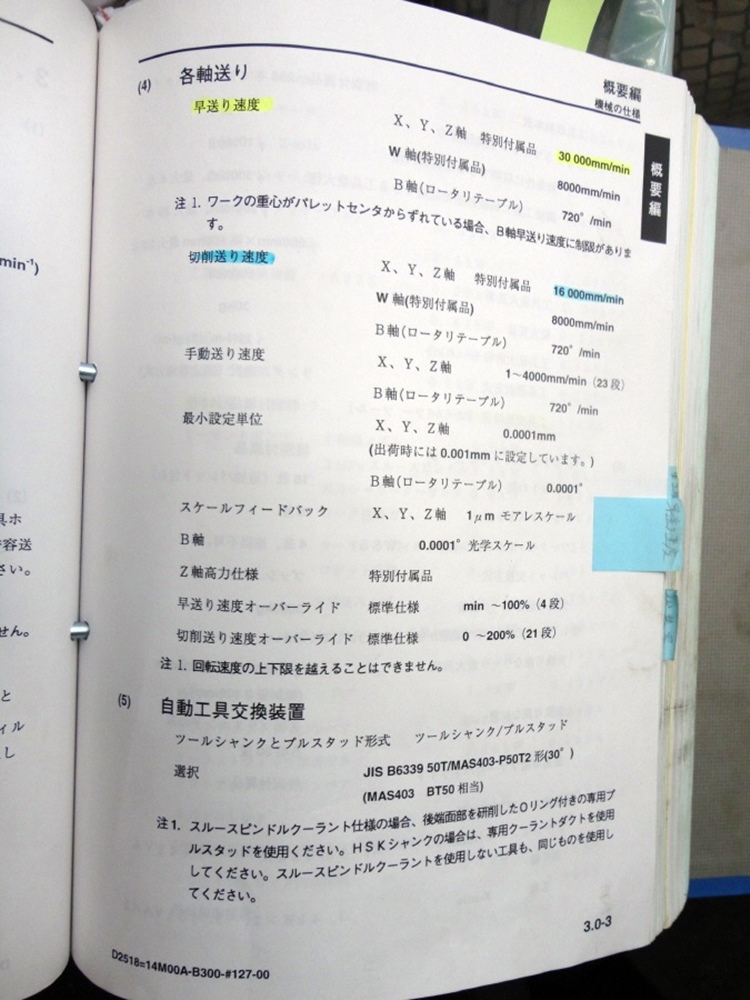 概要編
機械の仕様
概要編
(4) 各軸送り
早送り速度
X、Y、Z軸 特別付属品 30 000mm/min
W 軸(特別付属品) 8000mm/min
B軸(ロータリテーブル) 720°/min
注 1. ワークの重心がパレットセンタからずれている場合、B軸早送り速度に制限がありま
す。
切削送り速度
X、Y、Z軸 特別付属品 16 000mm/min
W 軸(特別付属品) 8000mm/min
B軸(ロータリテーブル) 720°/min
手動送り速度
X、Y、Z軸 1〜4000mm/min (23段)
B軸(ロータリテーブル) 720°/min
最小設定単位
X、Y、Z軸 0.0001mm
(出荷時には 0.001mm に設定しています。)
B軸(ロータリテーブル) 0.0001°
スケールフィードバック X、Y、Z軸 1μm モアレスケール
B軸 0.0001° 光学スケール
Z軸高力仕様 特別付属品
早送り速度オーバーライド 標準仕様 min 〜100% (4段)
切削送り速度オーバーライド 標準仕様 0 〜200% (21段)
注 1. 回転速度の上下限を越えることはできません。
(5) 自動工具交換装置
ツールシャンクとプルスタッド形式 ツールシャンク/プルスタッド
選択 JIS B6339 50T/MAS403-P50T2 形(30°)
(MAS403 BT50 相当)
注1. スルースピンドルクーラント仕様の場合、後端面部を研削したOリング付きの専用プ
ルスタッドを使用ください。HSKシャンクの場合は、専用クーラントダクトを使用
してください。スルースピンドルクーラントを使用しない工具も、同じものを使用し
てください。
3.0-3
D2518=14M00A-B300-#127-00
min⁻¹)
具ホ
容送
さい。
せん。
と
ィル
し